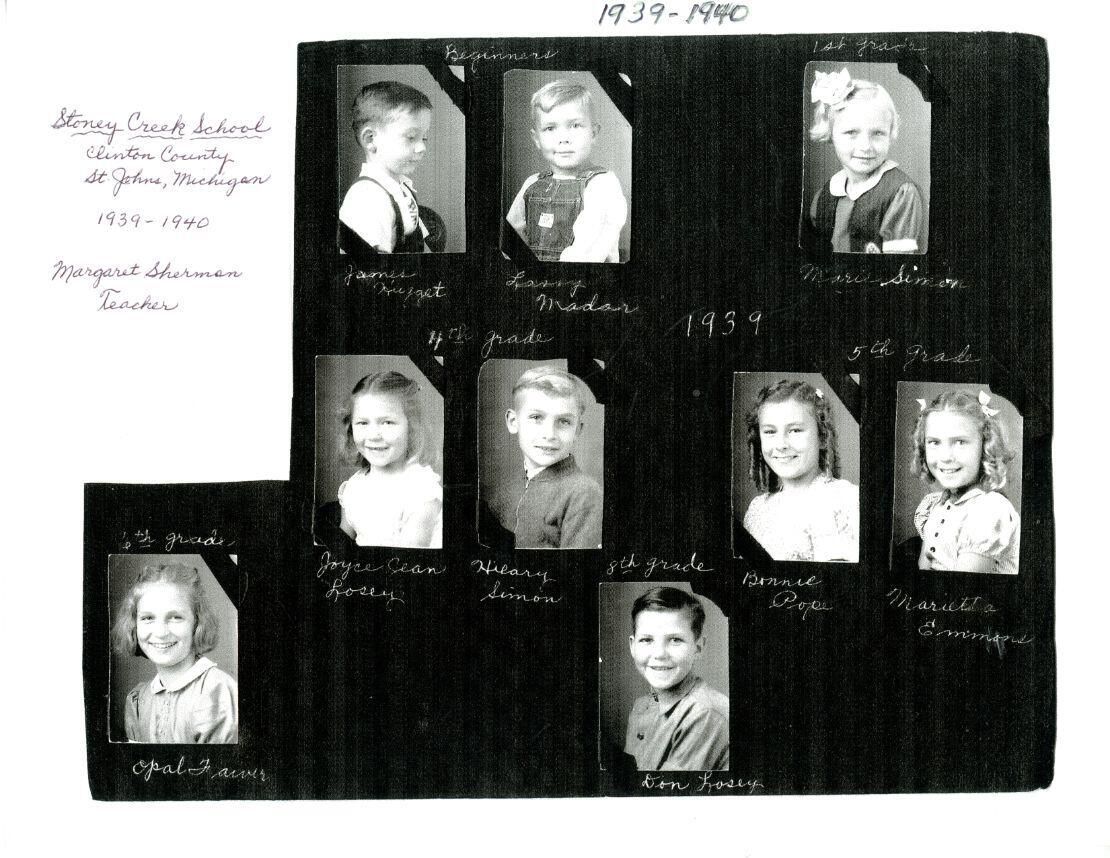 1939-1940
Stoney Creek School
Clinton County
St. Johns, Michigan
1939-1940
Margaret Sherman
Teacher
Beginners
1st grade
James
Nugget
Larry
Madar
Marie Simon
1939
4th grade
5th Grade
Joyce Jean
Losey
Hilary
Simon
Bonnie
Pope
Marietta
Emmons
6th grade
8th grade
Opal
Don Losey